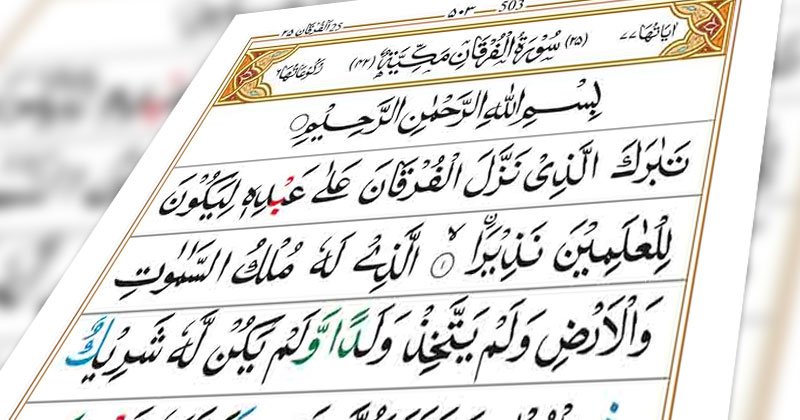 ٥٠٣ 503
الفرقان ٢٥ 25
اٰیَاتُهَا ٧٧ (٢٥) سُوْرَةُ الْفُرْقَانِ مَكِّیَّةٌ (٤٢) رُكُوْعَاتُهَا ٦
بِسْمِ اللّٰهِ الرَّحْمٰنِ الرَّحِیْمِ
تَبٰرَكَ الَّذِیْ نَزَّلَ الْفُرْقَانَ عَلٰی عَبْدِهٖ لِیَكُوْنَ
لِلْعٰلَمِیْنَ نَذِیْرَا ۙ﴿۱﴾ الَّذِیْ لَهٗ مُلْكُ السَّمٰوٰتِ
وَالْاَرْضِ وَلَمْ یَتَّخِذْ وَلَدًا وَّلَمْ یَكُنْ لَّهٗ شَرِیْكٌ